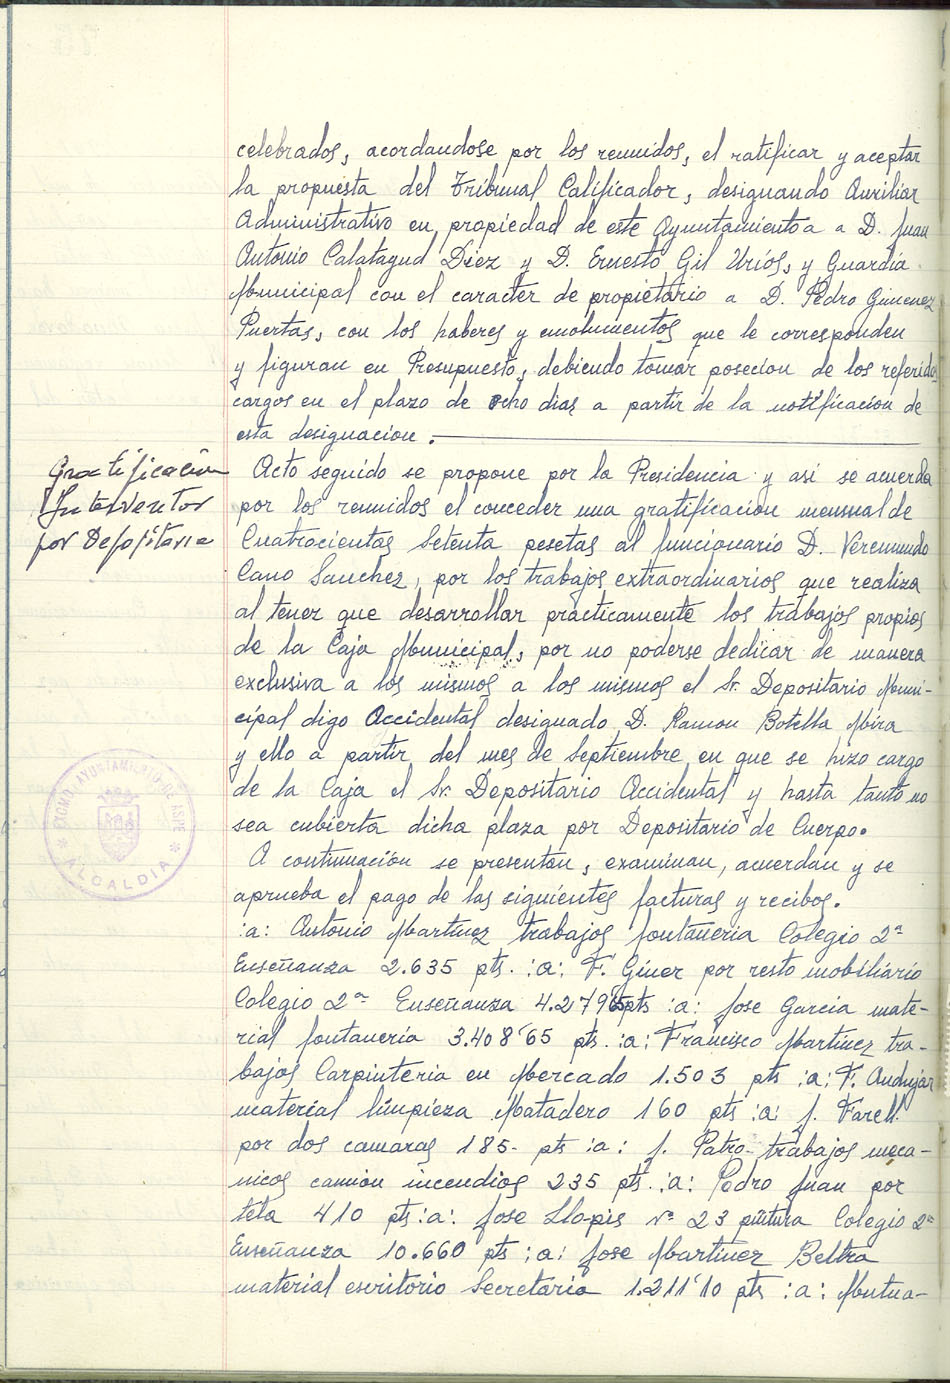 celebrados, acordandose por los reunidos, el ratificar y aceptar
la propuesta del Tribunal Calificador, designando Auxiliar
Administrativo en propiedad de este Ayuntamiento a a D. Juan
Antonio Calatayud Diez y D. Ernesto Gil Urios, y Guardia
Municipal con el caracter de propietario a D. Pedro Gimenez
Puertas, con los haberes y emolumentos que le corresponden
y figuran en Presupuesto, debiendo tomar posecion de los referidos
cargos en el plazo de ocho dias a partir de la notificacion de
esta designacion.
Gratificación
Interventor
por Depositaria
Acto seguido se propone por la Presidencia y asi se acuerda
por los reunidos el conceder una gratificacion mensual de
Cuatrocientas Setenta pesetas al funcionario D. Veremundo
Cano Sanchez, por los trabajos extraordinarios que realiza
al tener que desarrollar practicamente los trabajos propios
de la Caja Municipal, por no poderse dedicar de manera
exclusiva a los mismos a los mismos el Sr. Depositario Muni-
cipal digo Accidental designado D. Ramon Botella Mira
y ello a partir del mes de Septiembre en que se hizo cargo
de la Caja el Sr. Depositario Accidental y hasta tanto no
sea cubierta dicha plaza por Depositario de Cuerpo.
EXCMO. AYUNTAMIENTO DE ASPE
* ALCALDIA *
A continuación se presentan, examinan, acuerdan y se
aprueba el pago de las siguientes facturas y recibos.
:a: Antonio Martinez trabajos fontaneria Colegio 2ª
Enseñanza 2.635 pts. :a: F. Giner por resto mobiliario
Colegio 2ª Enseñanza 4.279 pts :a: Jose Garcia mate-
rial fontaneria 3.408'65 pts. :a: Francisco Martinez tra-
bajos Carpinteria en Mercado 1.503 pts :a: F. Andujar
material limpieza Matadero 160 pts :a: J. Farell
por dos camaras 185- pts :a: J. Patro- trabajos meca-
nicos camion incendios 235 pts. :a: Pedro Juan por
tela 410 pts :a: Jose Llopis Nº 23 pintura Colegio 2ª
Enseñanza 10.660 pts :a: Jose Martinez Beltra
material escritorio Secretaria 1.211'10 pts :a: Mutua-